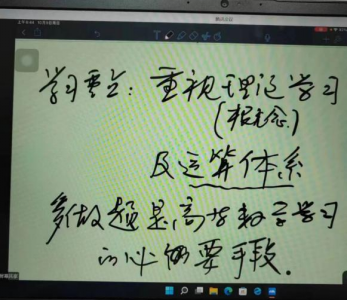 学习要点：重视理论学习
（概念）
及运算体系
多做题是高等数学学习
的必要手段.